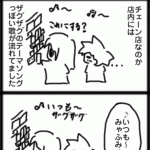 チェーン店なのか
店内には
ザグザグのテーマソング
っぽい歌が流れてました
これいてする?
♪いつも〜
ザーグザグ
♪いつも〜
みゃふみ